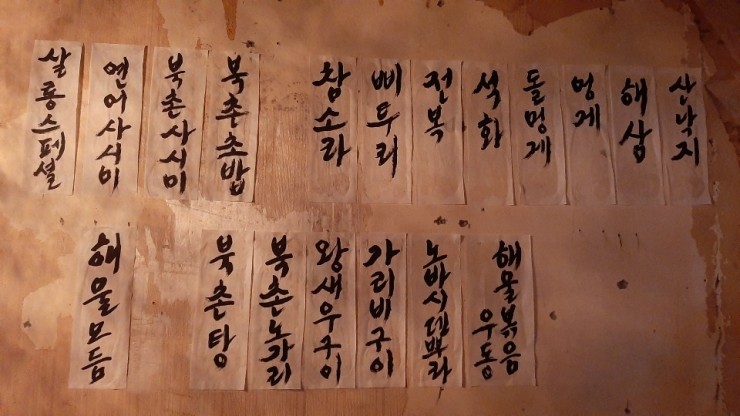 살롱스페셜
연어사시미
북촌사시미
북촌초밥
참소라
삐뚜리
전복
석화
돌멍게
멍게
해삼
산낙지
해물모듬
북촌탕
북촌노가리
왕새우구이
가리비구이
노바시덴뿌라
해물볶음
우동